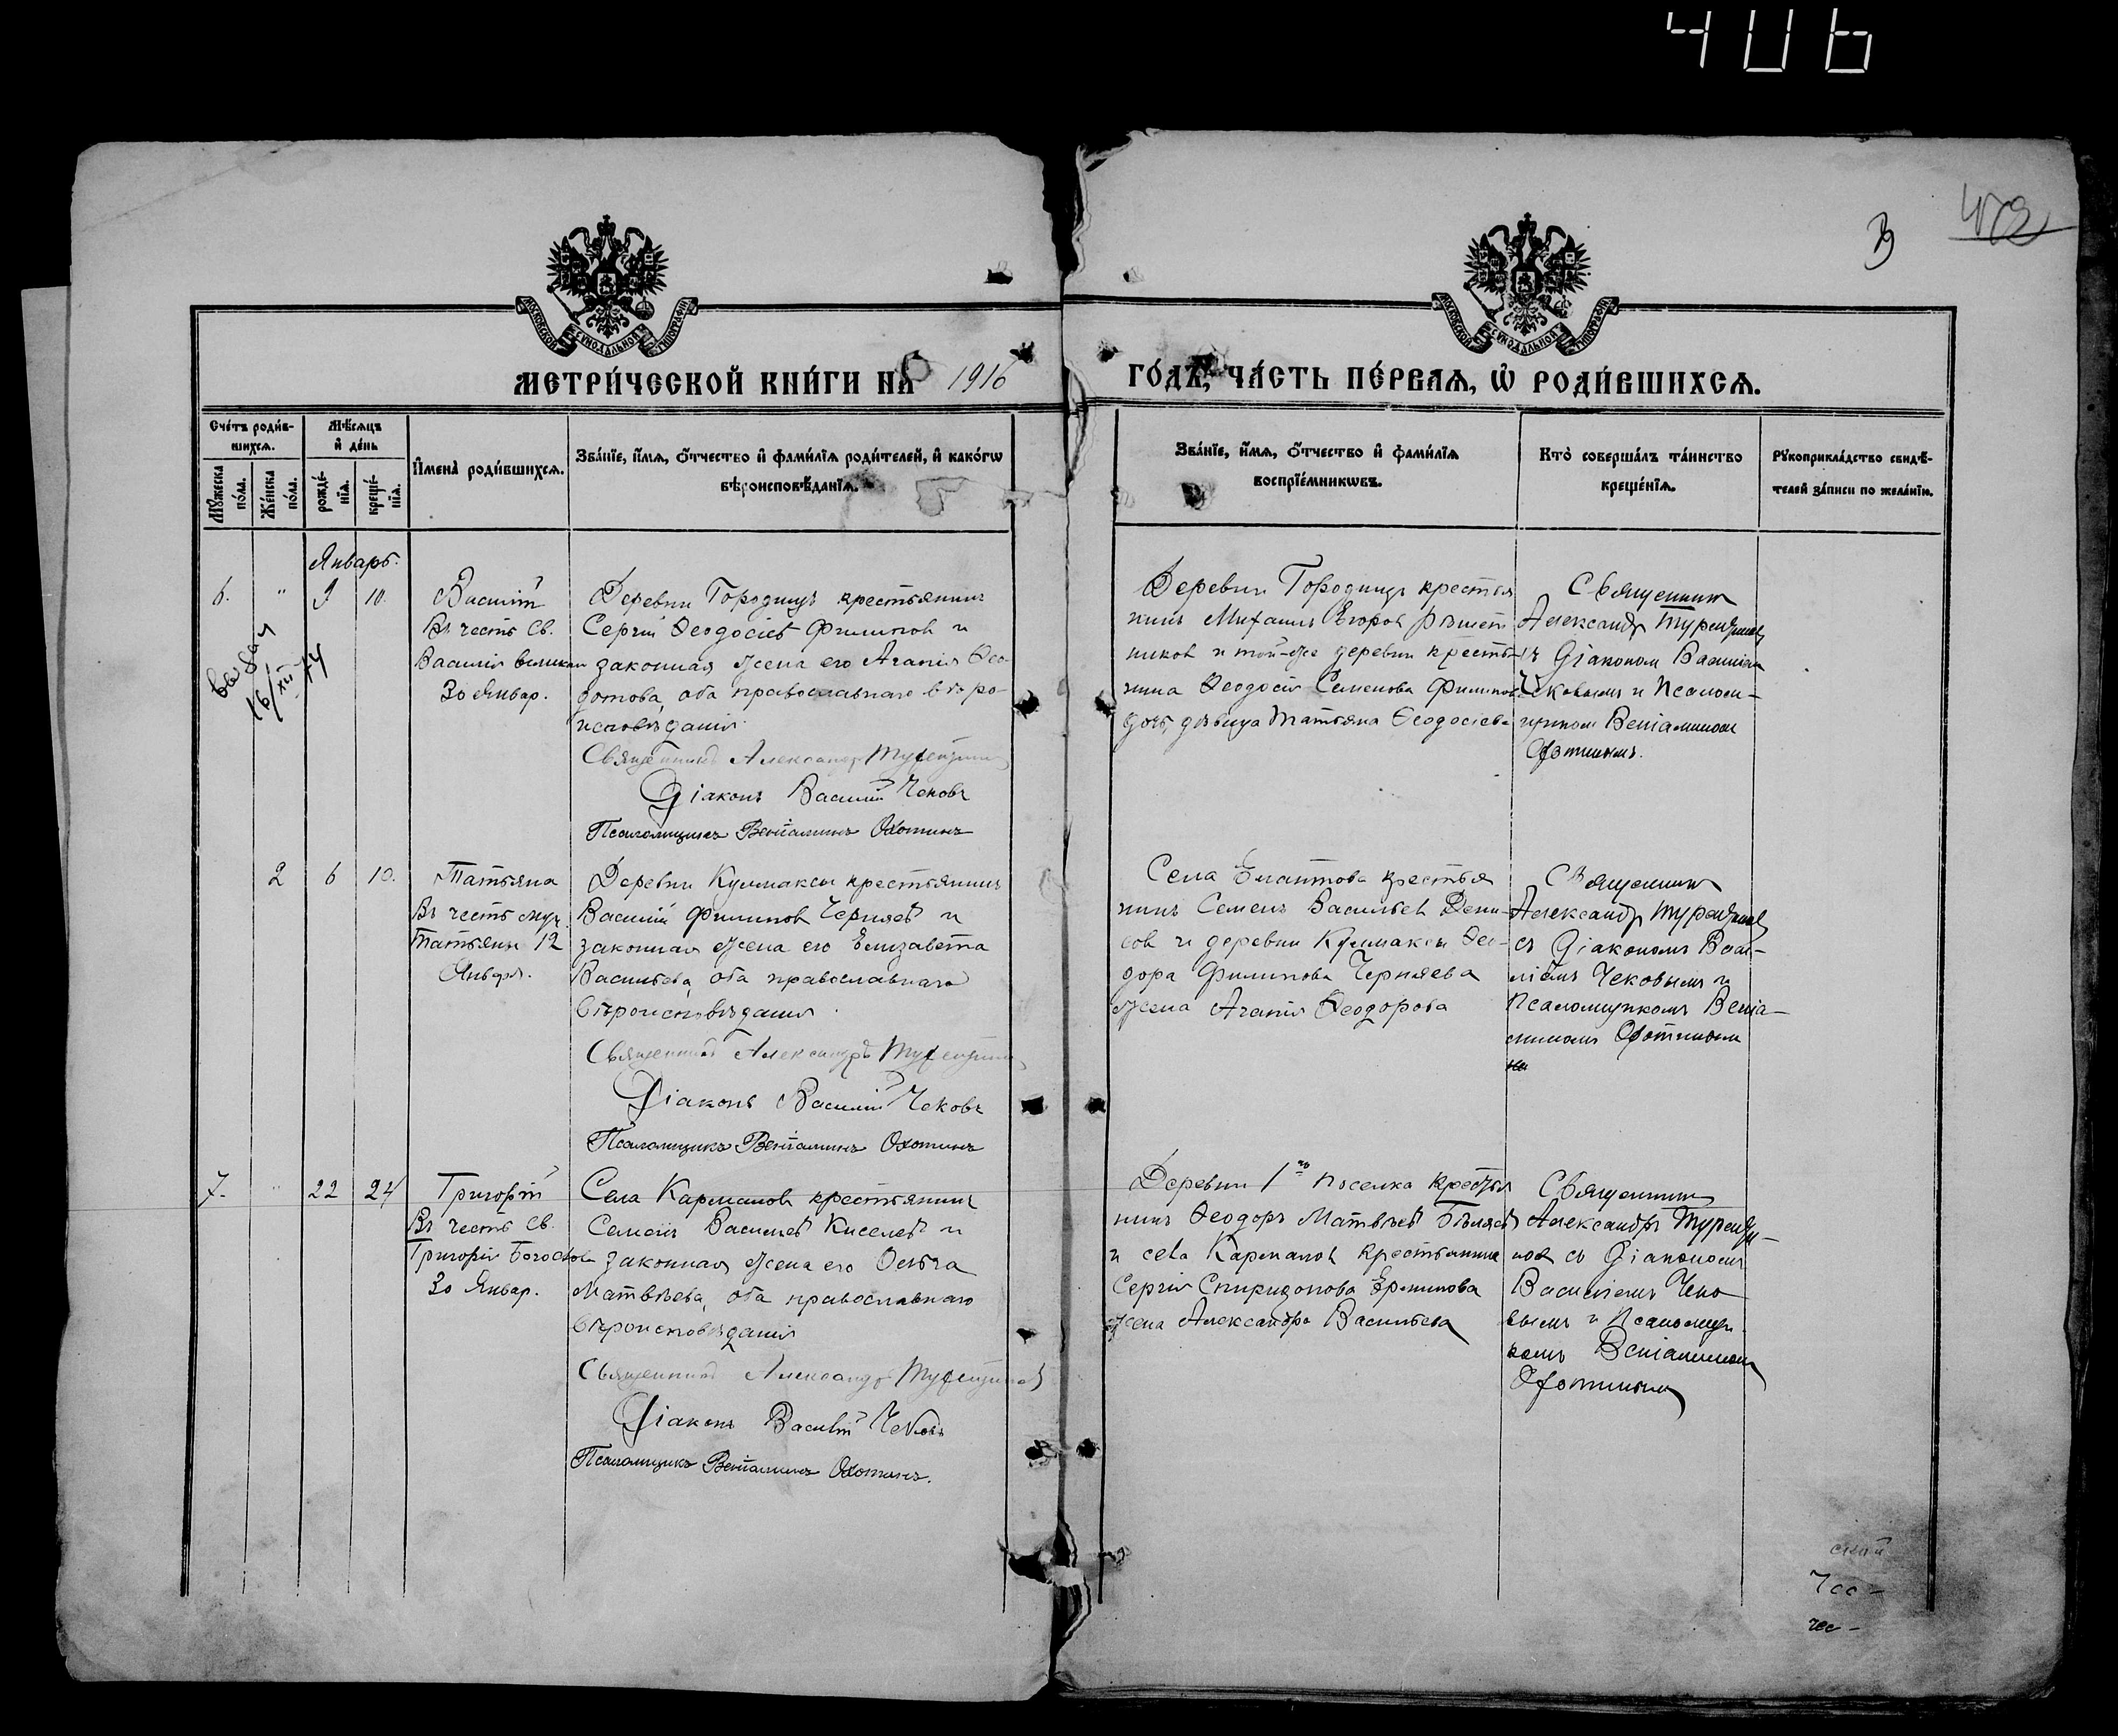 406
3
472
МОСКОВСКОЙ СѴНОДАЛЬНОЙ ТИПОГРАФІИ
МОСКОВСКОЙ СѴНОДАЛЬНОЙ ТИПОГРАФІИ
МЕТРИ́ЧЕСКОЙ КНИ́ГИ НА 1916 ГО́ДЪ, ЧА́СТЬ ПЕ́РВАѦ, Ѿ РОДИ́ВШИХСѦ.
Сче́тъ роди́в-
шихсѧ.
Мѣ́сѧцъ
и҆ де́нь
Мꙋ́жеска
по́ла.
Же́нска
по́ла.
рожде́-
нїѧ.
креще́-
нїѧ.
И҆мена̀ роди́вшихсѧ.
Зва́нїе, и҆́мѧ, ѻ҆́тчество и҆ фами́лїѧ роди́телей, и҆ како́гѡ
вѣроисповѣ́данїѧ.
Зва́нїе, и҆́мѧ, ѻ҆́тчество и҆ фами́лїѧ
воспрїе́мникѡвъ.
Кто̀ соверша́лъ та́инство
креще́нїѧ.
Рꙋкоприкла́дство свидѣ́-
телей за́писи по жела́нїю.
Январь.
6. " 9 10.
Василій
Въ честь Св.
Василія великаго
30 Январ.
Деревни Городищъ крестьянинъ
Сергій Ѳеодосіевъ Филиповъ и
законная жена его Агапія Ѳео-
дотова, оба православнаго вѣро-
исповѣданія.
Священникъ Александръ
Діаконъ Василій Чековъ
Псаломщикъ Веніаминъ Охотинъ
Деревни Городищъ крестья
нинъ Михаилъ Егоровъ Рѣшет
никовъ и той-же деревни крестья-
нина Ѳеодосія Семенова Филипова
дочь, дѣвица Татьяна Ѳеодосіева
Священникъ
Александръ
съ Діакономъ Василіемъ
Чековымъ и Псалом-
щикомъ Веніаминомъ
Охотинымъ.
2 6 10.
Татьяна
Въ честь муч.
Татьяны 12
Января.
Деревни Кулмаксы крестьянинъ
Василій Филиповъ Черняевъ и
законная жена его Елизавета
Васильева, оба православнаго
вѣроисповѣданія
Священникъ Александръ
Діаконъ Василій Чековъ
Псаломщикъ Веніаминъ Охотинъ
Села крестья
нинъ Семенъ Васильевъ Дени-
совъ и деревни Кулмаксы Ѳео-
дора Филипова Черняева
жена Агапія Ѳеодорова
Священникъ
Александръ
съ Діакономъ Васи-
ліемъ Чековымъ и
Псаломщикомъ Веніа-
миномъ Охотинымъ
7. " 22 24
Григорій
Въ честь Св.
Григорія Богослова
30 Январ.
Села Карманова крестьянинъ
Семенъ Васильевъ Киселевъ и
законная жена его Ольга
Матвѣева, оба православнаго
вѣроисповѣданія
Священникъ Александръ
Діаконъ Василій Чековъ
Псаломщикъ Веніаминъ Охотинъ.
Деревни 1го поселка крестья
нинъ Ѳеодоръ Матвѣевъ Бѣляевъ
и села Карманова крестьянина
Сергія Спиридонова Ермилова
жена Александра Васильева
Священникъ
Александръ
со Діакономъ
Василіемъ Чеко
вымъ и Псаломщи
комъ Веніаминомъ
Охотинымъ